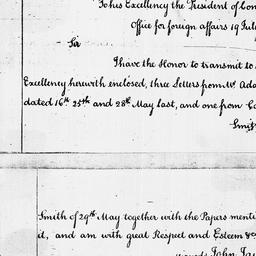 To his Excellency the President of Con
Office for foreign affairs 19 July
Sir
I have the Honor to transmit to
Excellency herewith enclosed, three Letters from Mr. Ada
dated 16th 25th and 28th May last, and one from Co
Smit
Smith of 29th May together with the Papers menti
it, and am with great Respect and Esteem &c
John Jay